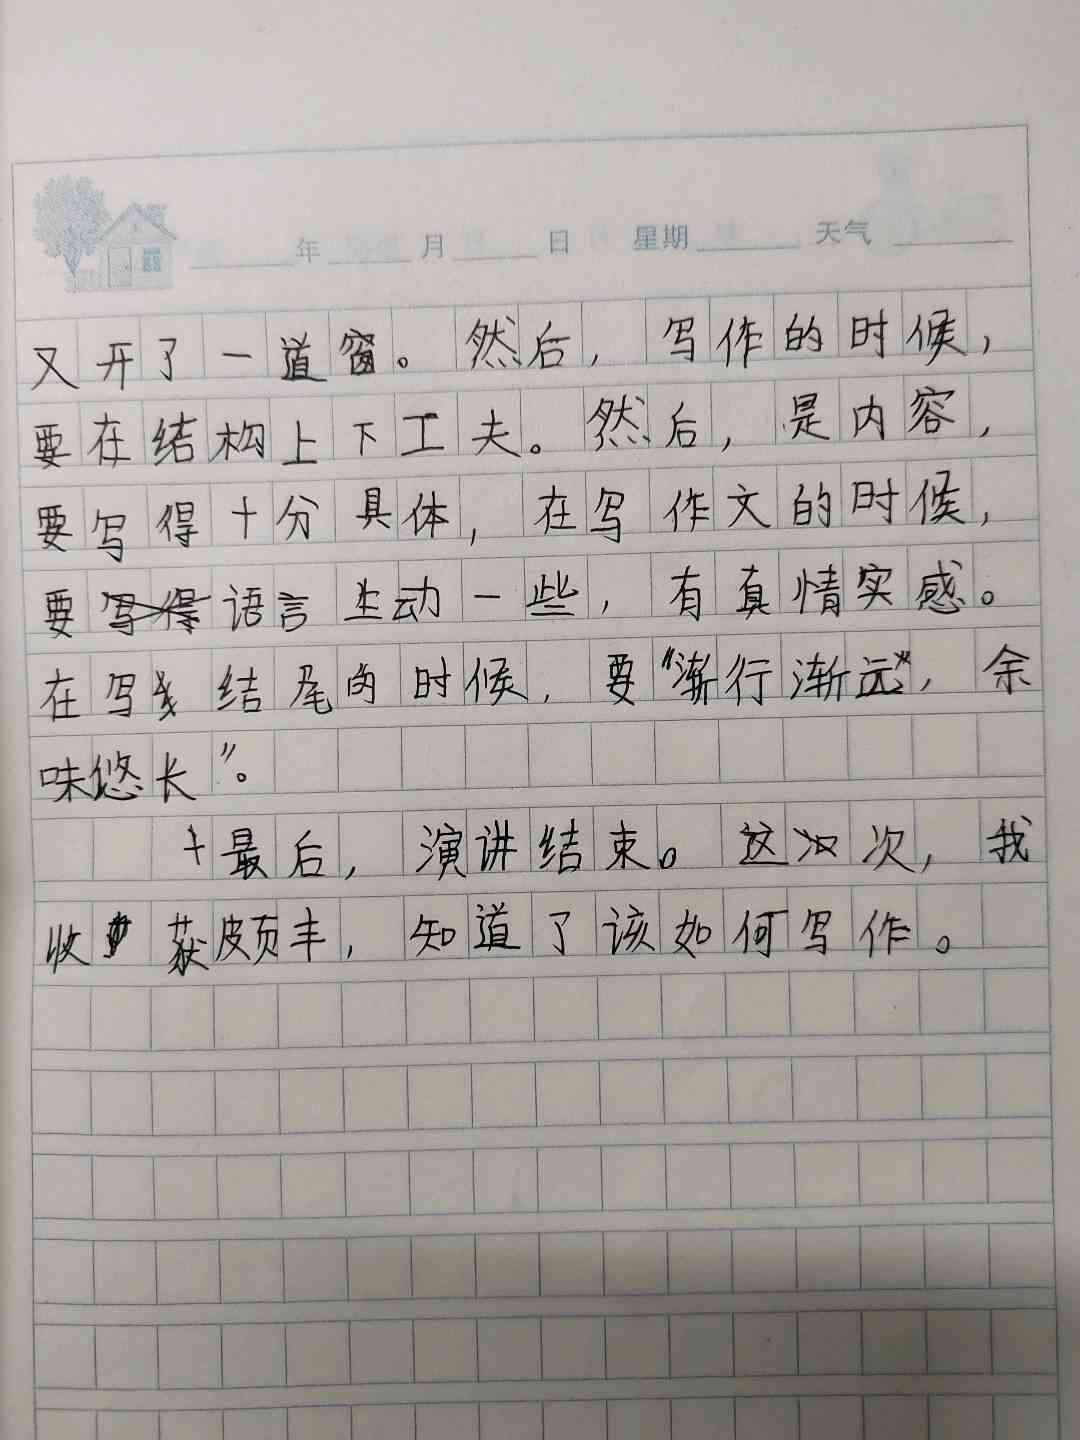 年 月 日 星期 天气
又开了一道窗。然后，写作的时候，
要在结构上下工夫。然后，是内容，
要写得十分具体，在写作文的时候，
要语言生动一些，有真情实感。
在写结尾的时候，要“渐行渐远”，余
味悠长”。
最后，演讲结束。这次，我
收获颇丰，知道了该如何写作。